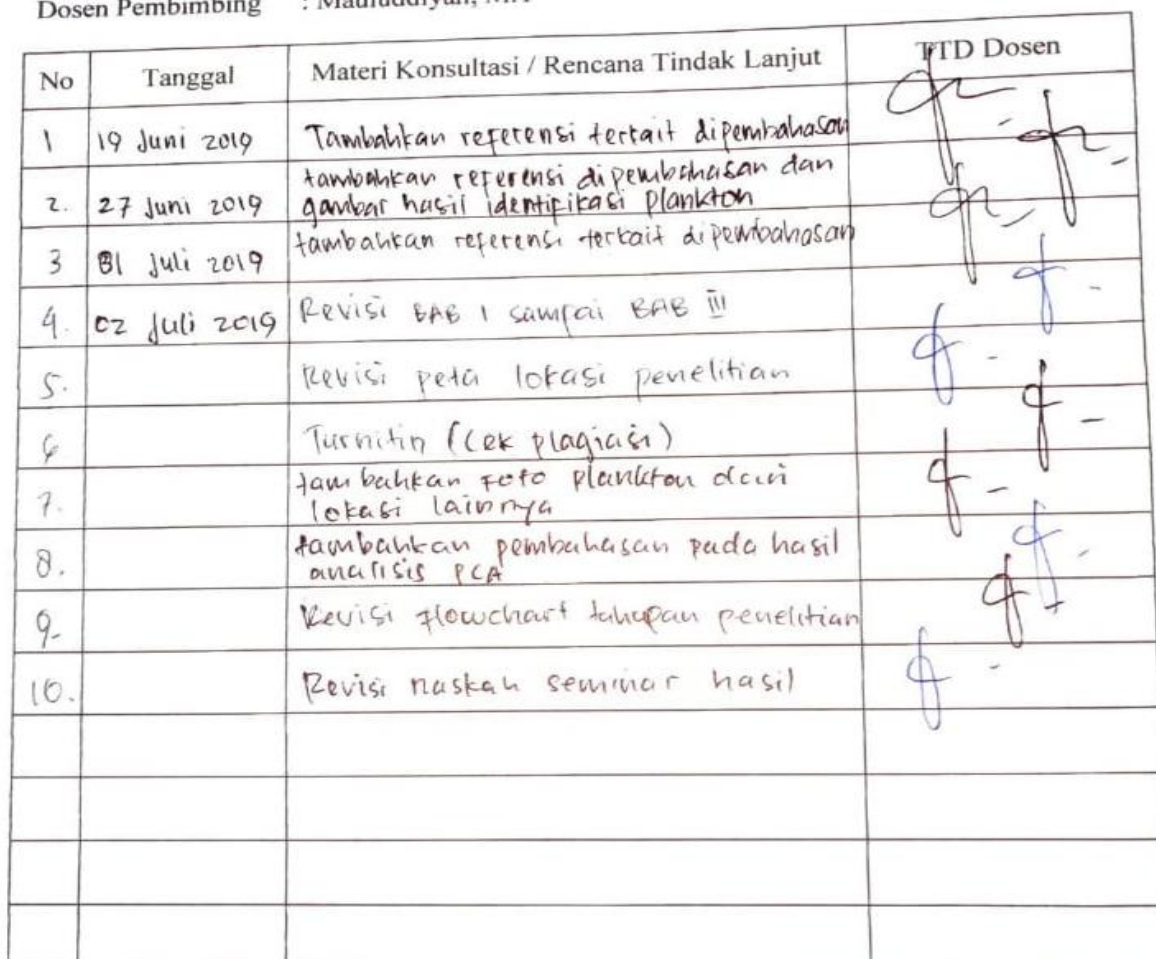 Dosen Pembimbing :
No Tanggal Materi Konsultasi / Rencana Tindak Lanjut TTD Dosen
1 19 Juni 2019 Tambahkan referensi terkait dipembahasan
tambahkan referensi dipembahasan dan
2. 27 Juni 2019 gambar hasil identifikasi plankton
tambahkan referensi terkait dipembahasan
3 Juli 2019
4. 02 Juli 2019 Revisi BAB I sampai BAB III
5. Revisi peta lokasi penelitian
6 Turnitin (cek plagiasi)
tambahkan foto plankton dari
7. lokasi lainnya
tambahkan pembahasan pada hasil
8. analisis PCA
9. Revisi flowchart tahapan penelitian
10. Revisi naskah seminar hasil